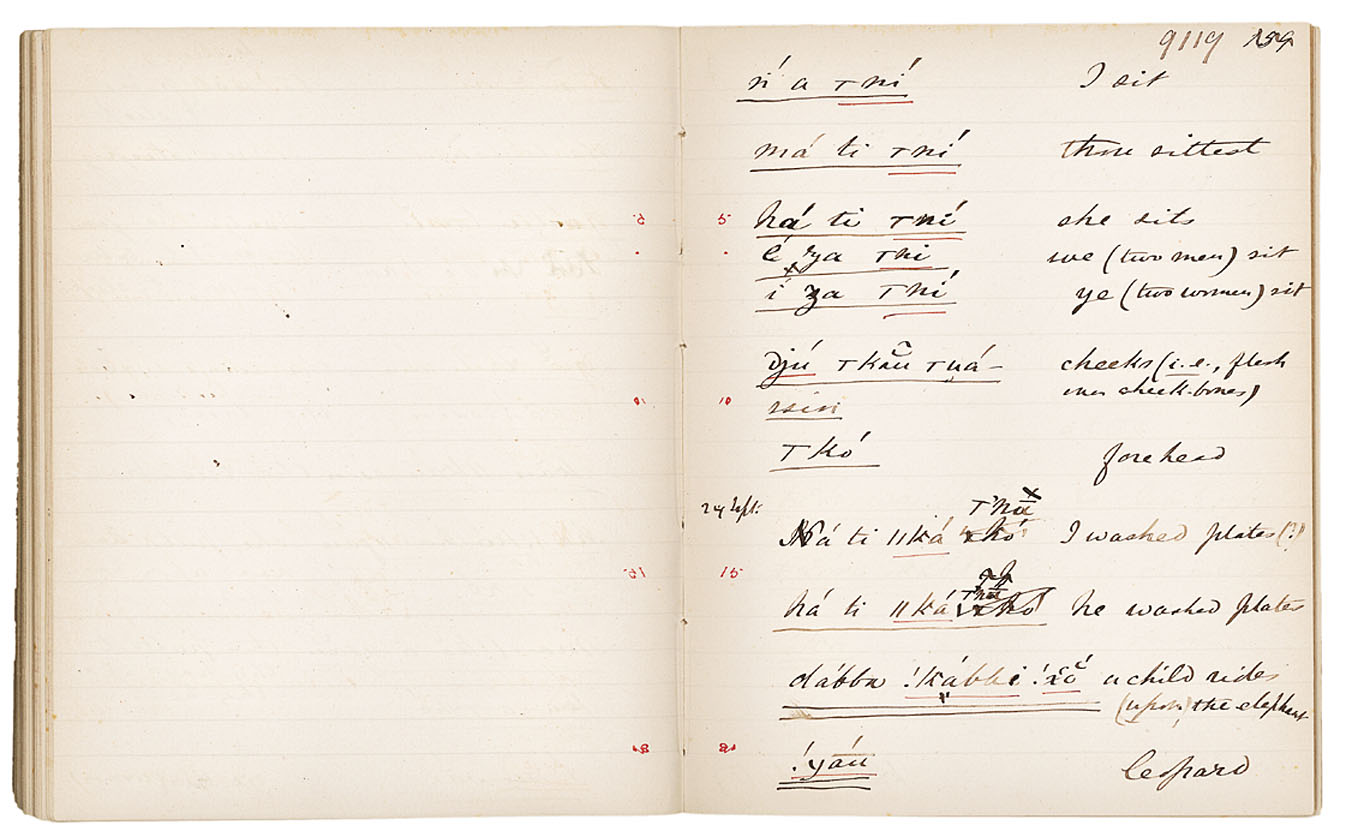 9119
ń a τní I sit
má ti τní thou sittest
5. há ti τní she sits
é ʒa τni we (two men) sit
í ʒa τní ye (two women) sit
djú τkãũ τuá- cheeks (i.e., flesh
10. ssin over cheek-bones)
τkó forehead
τ'hā
24 Sept. Ná ti ǁká I washed plates (?)
15.
há ti ǁká he washed plates
dábba !kábbi !xó a child rides
(upon) the elephant
!γáu leopard